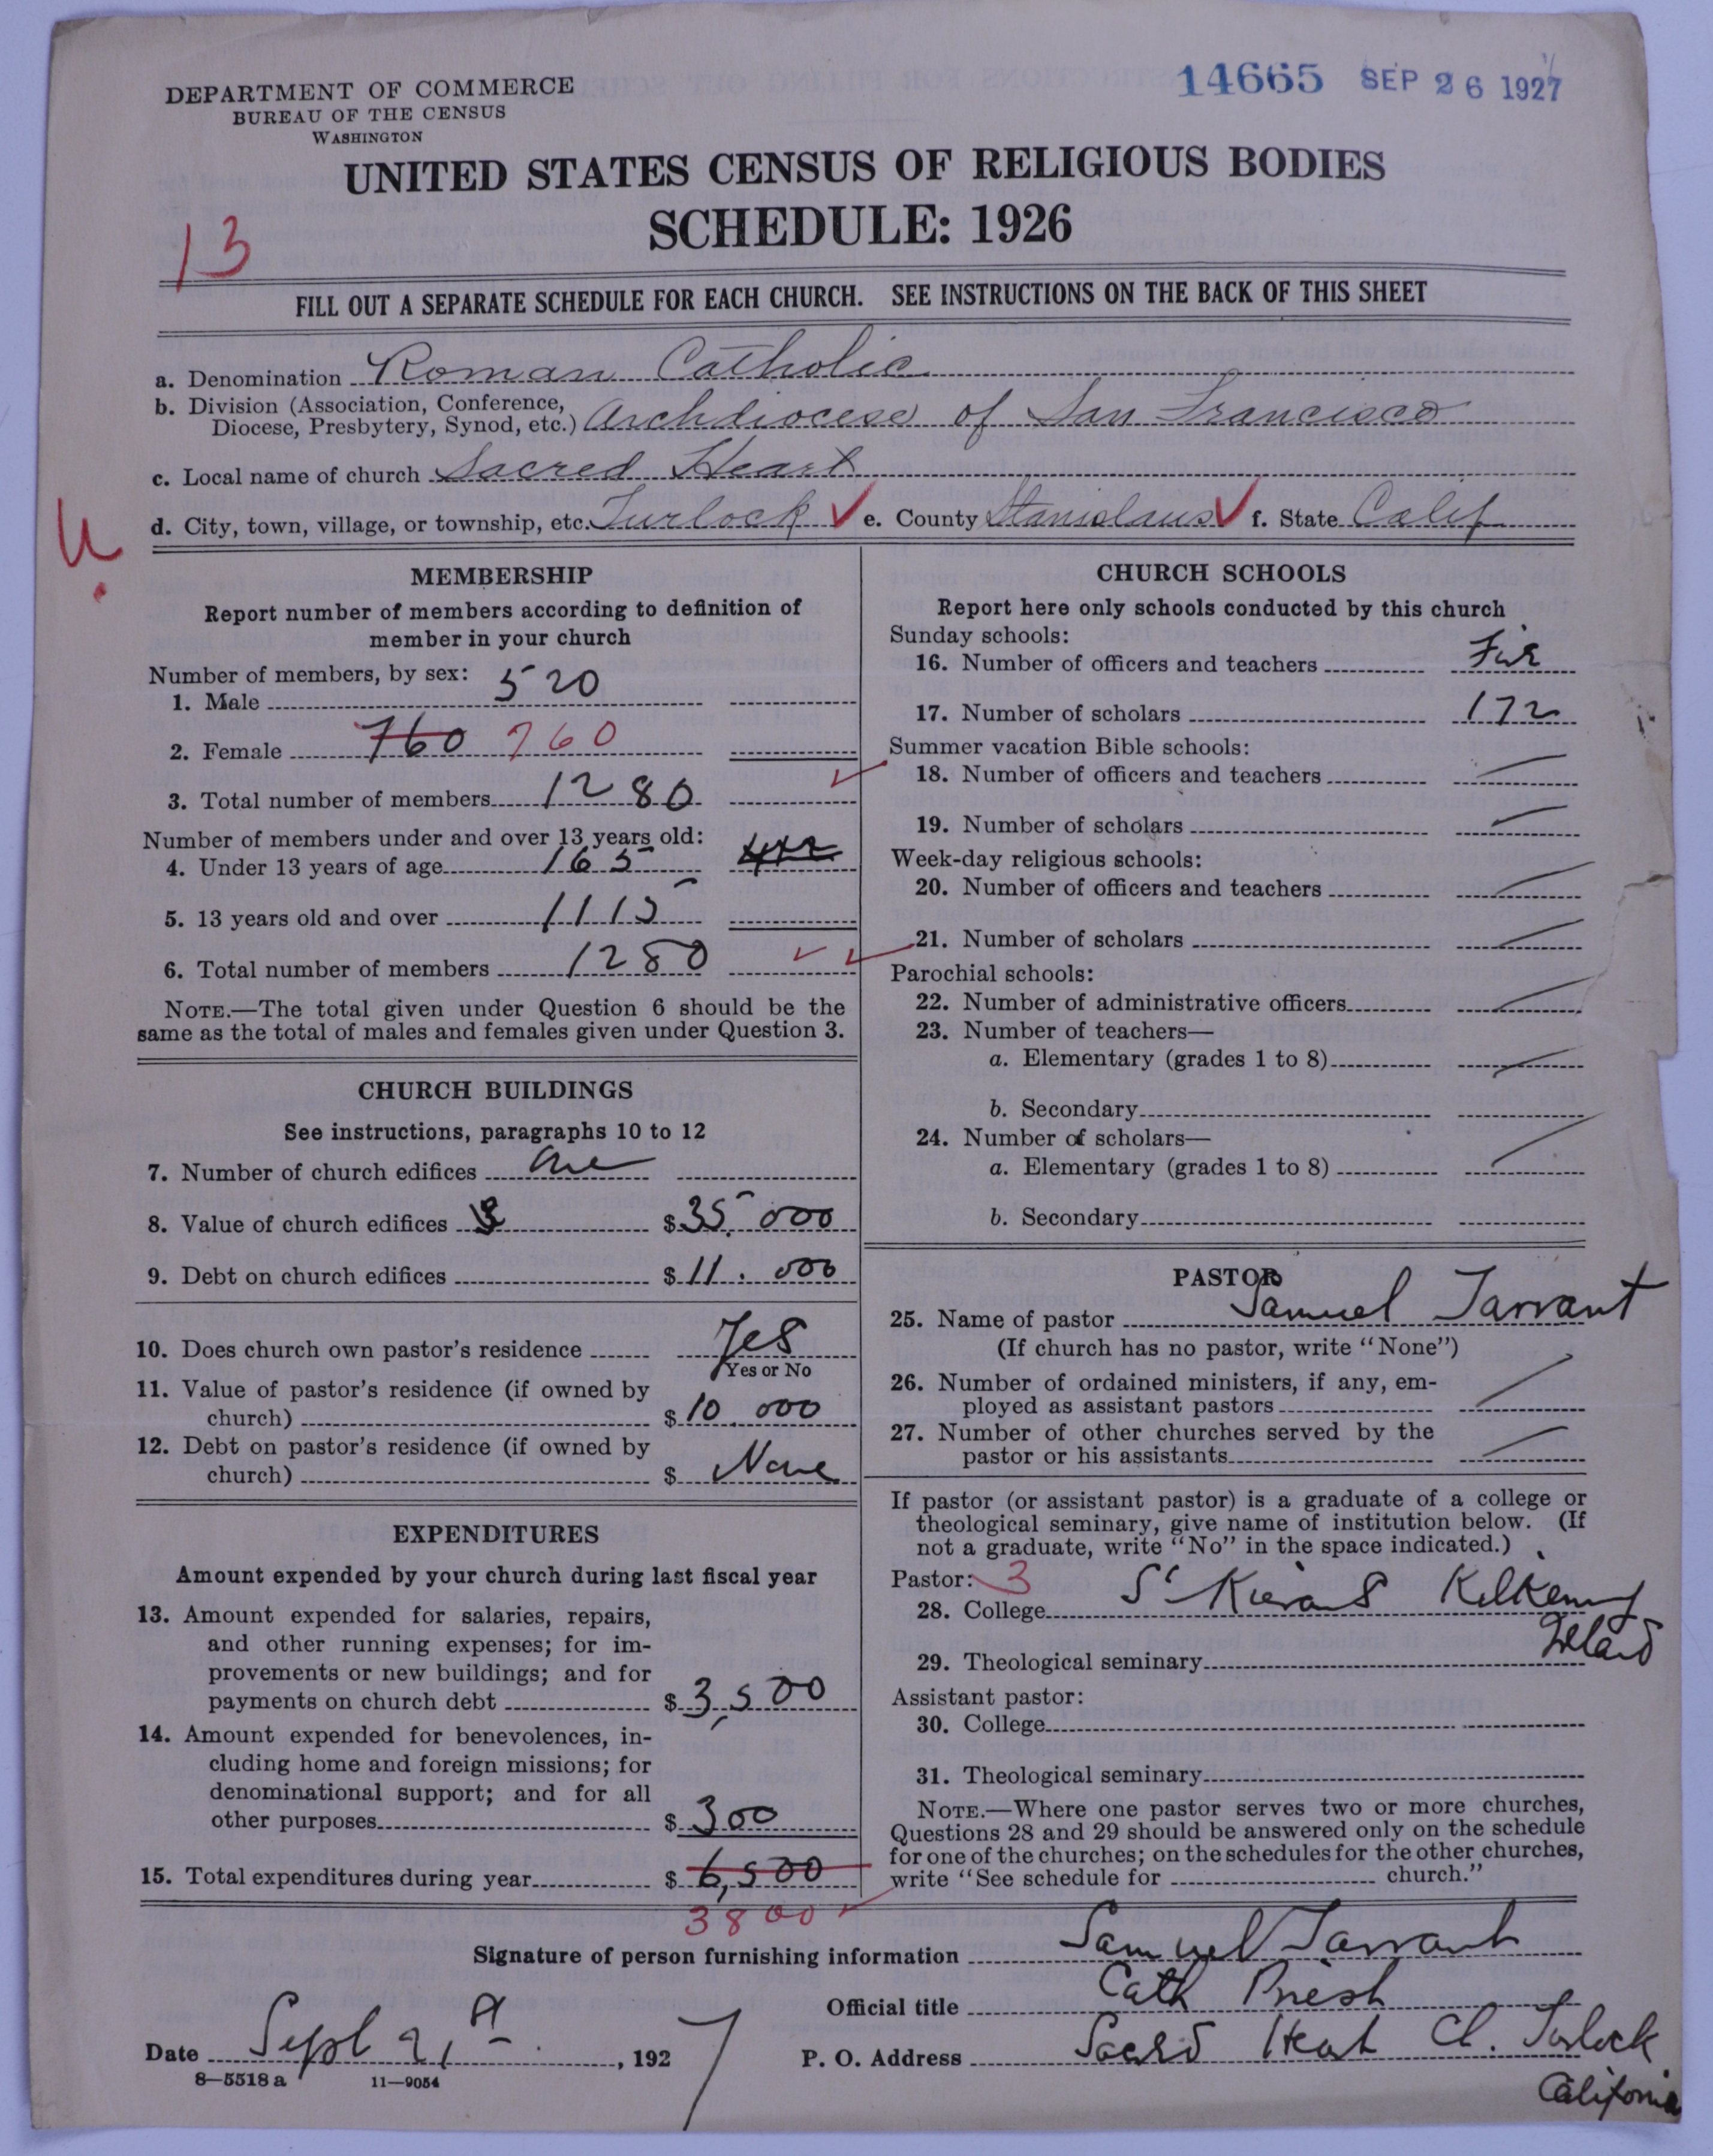 14665 SEP 26 1927
DEPARTMENT OF COMMERCE
BUREAU OF THE CENSUS
WASHINGTON
UNITED STATES CENSUS OF RELIGIOUS BODIES
SCHEDULE: 1926
13
FILL OUT A SEPARATE SCHEDULE FOR EACH CHURCH. SEE INSTRUCTIONS ON THE BACK OF THIS SHEET
a. Denomination Roman Catholic
b. Division (Association, Conference,
Diocese, Presbytery, Synod, etc.) Archdiocese of San Francisco
c. Local name of church Sacred Heart
d. City, town, village, or township, etc. Turlock e. County Stanislaus f. State Calif
MEMBERSHIP
Report number of members according to definition of
member in your church
Number of members, by sex:
1. Male 520
2. Female 760 760
3. Total number of members 1280
Number of members under and over 13 years old:
4. Under 13 years of age 165
5. 13 years old and over 1115
6. Total number of members 1280
NOTE.—The total given under Question 6 should be the
same as the total of males and females given under Question 3.
CHURCH BUILDINGS
See instructions, paragraphs 10 to 12
7. Number of church edifices One
8. Value of church edifices $ 35.000
9. Debt on church edifices $ 11.000
10. Does church own pastor's residence Yes
Yes or No
11. Value of pastor's residence (if owned by
church) $ 10.000
12. Debt on pastor's residence (if owned by
church) $ None
EXPENDITURES
Amount expended by your church during last fiscal year
13. Amount expended for salaries, repairs,
and other running expenses; for im-
provements or new buildings; and for
payments on church debt $ 3,500
14. Amount expended for benevolences, in-
cluding home and foreign missions; for
denominational support; and for all
other purposes $ 300
15. Total expenditures during year $ 6,500
3800
CHURCH SCHOOLS
Report here only schools conducted by this church
Sunday schools:
16. Number of officers and teachers
17. Number of scholars 172
Summer vacation Bible schools:
18. Number of officers and teachers
19. Number of scholars
Week-day religious schools:
20. Number of officers and teachers
21. Number of scholars
Parochial schools:
22. Number of administrative officers
23. Number of teachers—
a. Elementary (grades 1 to 8)
b. Secondary
24. Number of scholars—
a. Elementary (grades 1 to 8)
b. Secondary
PASTOR
25. Name of pastor Samuel Tarrant
(If church has no pastor, write "None")
26. Number of ordained ministers, if any, em-
ployed as assistant pastors
27. Number of other churches served by the
pastor or his assistants
If pastor (or assistant pastor) is a graduate of a college or
theological seminary, give name of institution below. (If
not a graduate, write "No" in the space indicated.)
Pastor: 3
28. College St Kierans Kilkenny
Ireland
29. Theological seminary
Assistant pastor:
30. College
31. Theological seminary
NOTE.—Where one pastor serves two or more churches,
Questions 28 and 29 should be answered only on the schedule
for one of the churches; on the schedules for the other churches,
write "See schedule for church."
Signature of person furnishing information Samuel Tarrant
Official title Cath Priest
Date Sept 21st, 1927 P. O. Address Sacred Heart Ch. Turlock
California
8—5518 a 11—9054